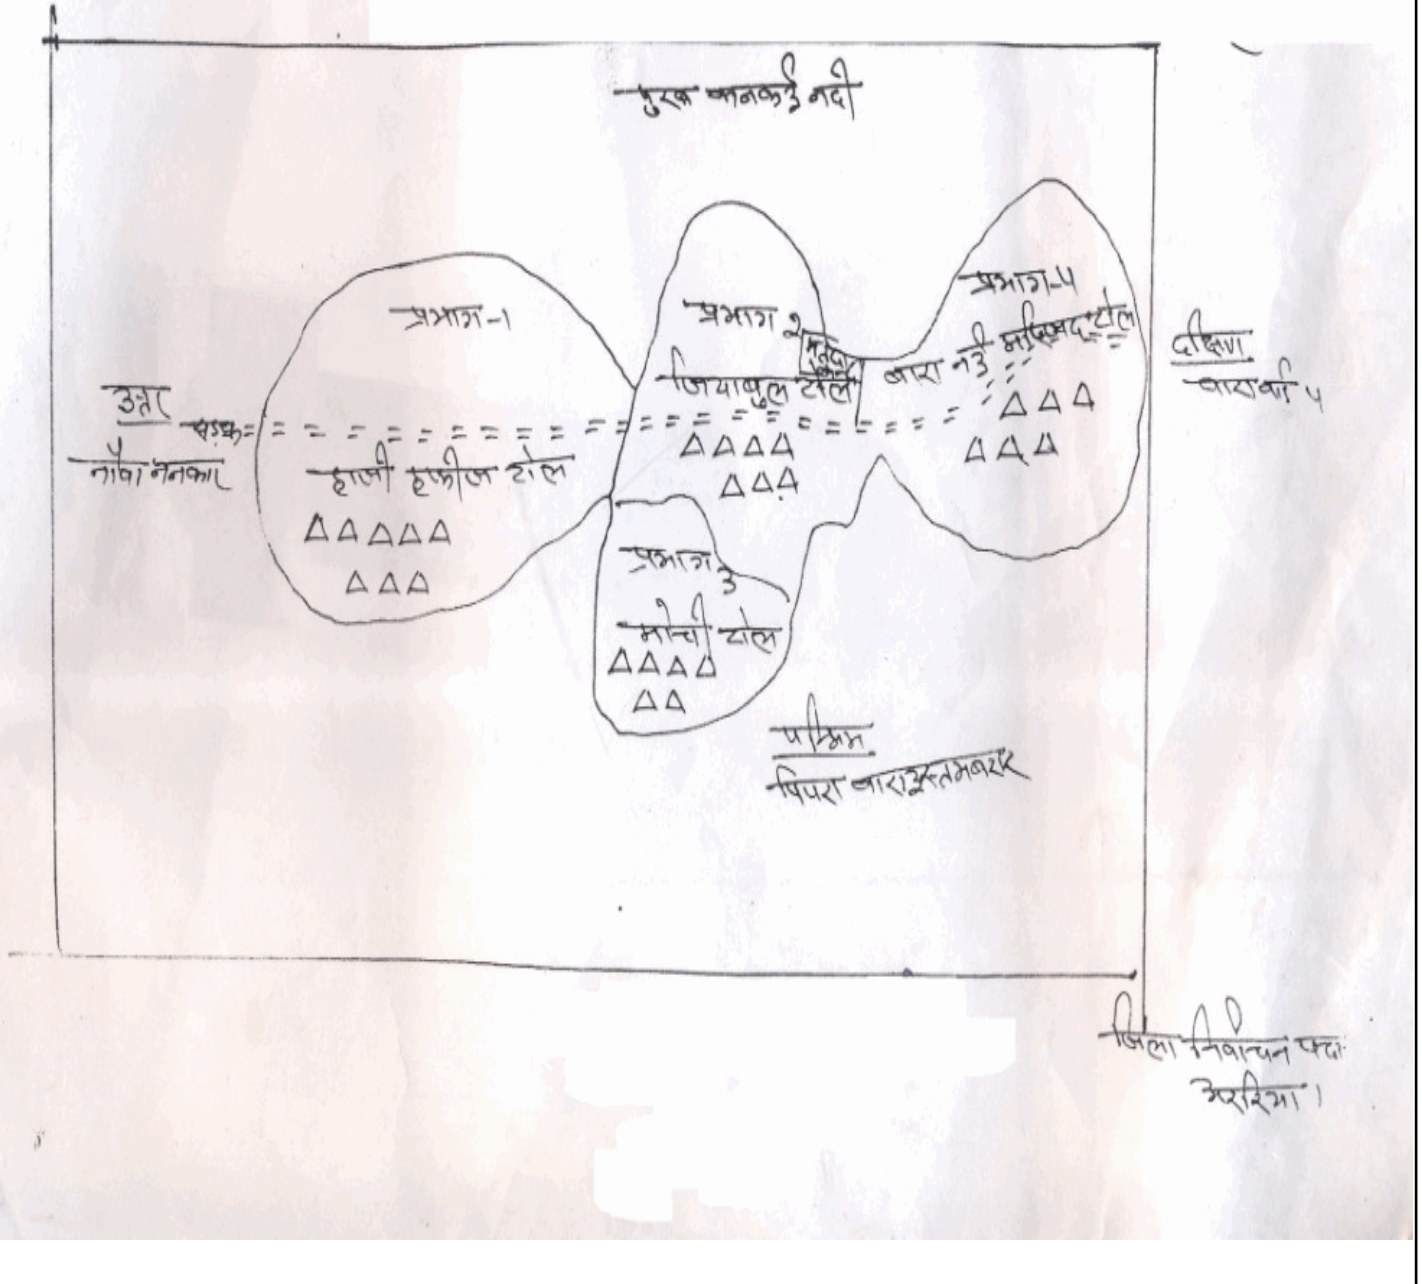 पुरब कनकई नदी
प्रभाग-1
प्रभाग 2
प्रभाग-4
जियागुल टोल
बारा नई मस्जिद टोल
दक्षिण
बारा वार्ड 4
उत्तर
सड़क
हाजी हफीज टोल
प्रभाग 3
मोची टोल
पश्चिम
पिपरा बारा इस्तमबरार
जिला निर्वाचन पदा.
अररिया।